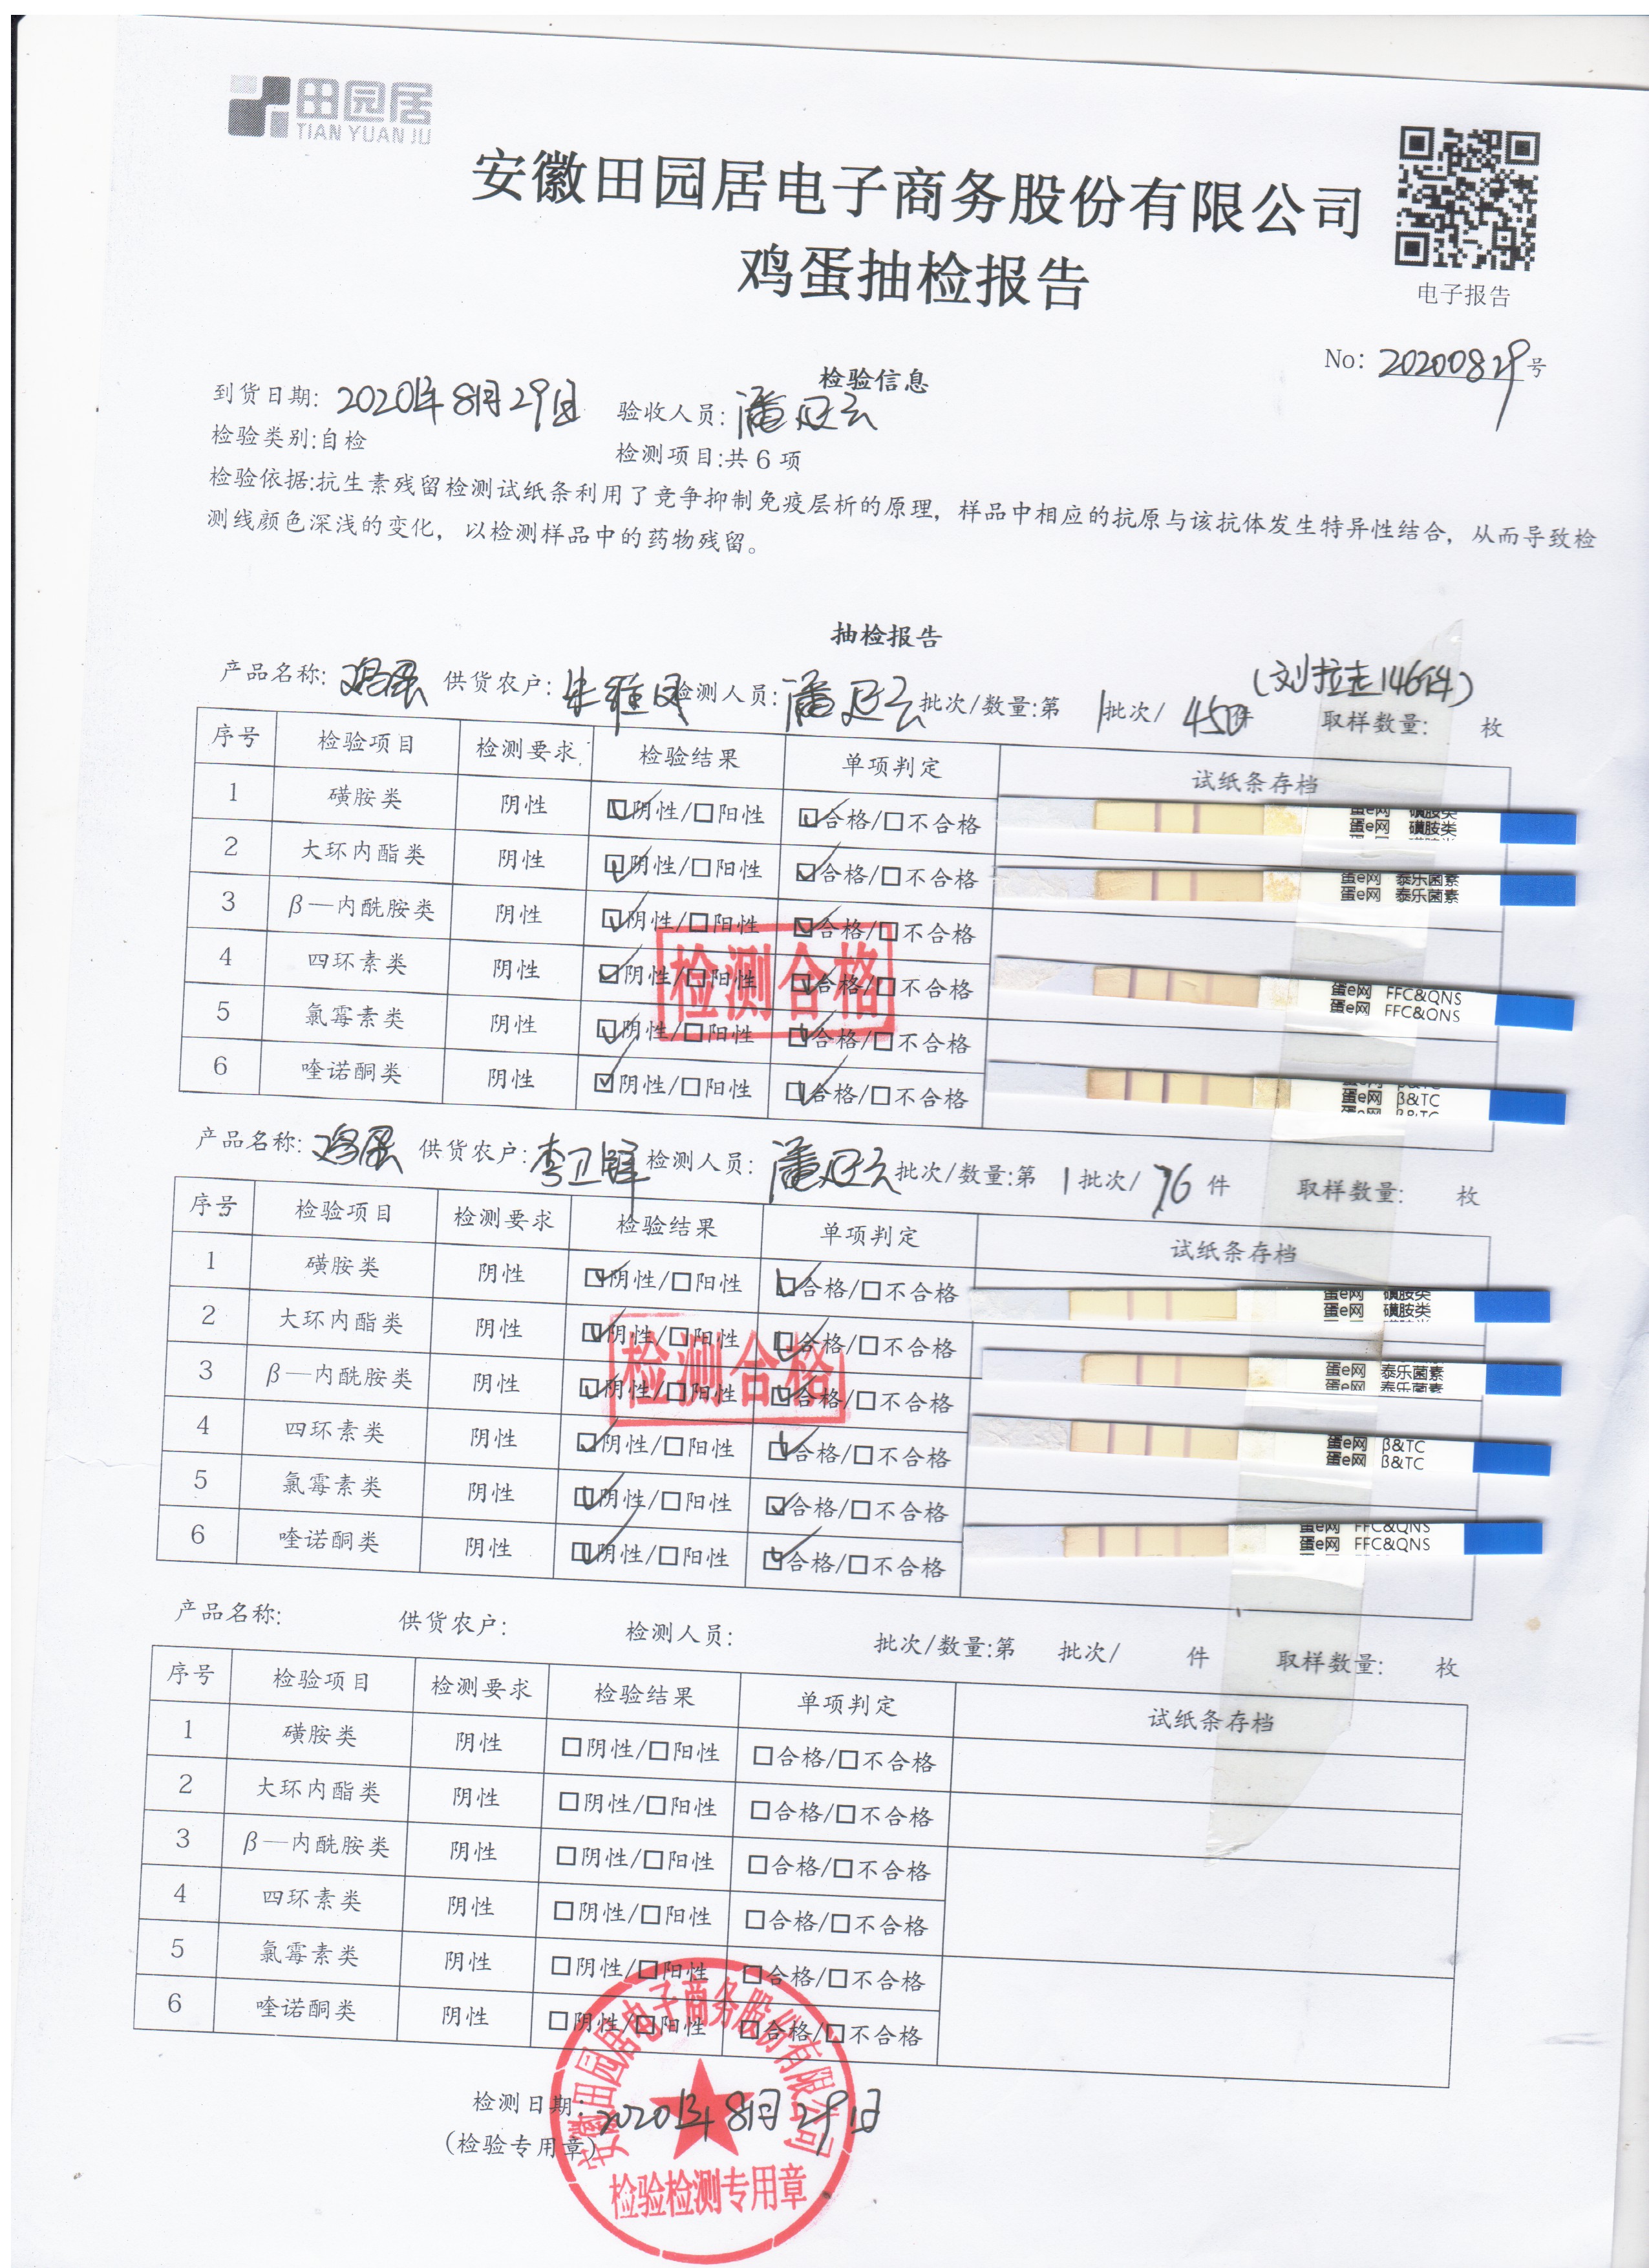 田园居
TIAN YUAN JU
安徽田园居电子商务股份有限公司
鸡蛋抽检报告
电子报告
No: 20200829号
检验信息
到货日期: 2020年8月29日 验收人员: 潘
检验类别:自检 检测项目:共6项
检验依据:抗生素残留检测试纸条利用了竞争抑制免疫层析的原理，样品中相应的抗原与该抗体发生特异性结合，从而导致检
测线颜色深浅的变化，以检测样品中的药物残留。
抽检报告
(刘拉走146件)
产品名称: 鸡蛋 供货农户: 朱 检测人员: 潘 批次/数量:第 1批次/ 450件 取样数量: 枚
序号 检验项目 检测要求 检验结果 单项判定 试纸条存档
1 磺胺类 阴性 ☑阴性/☐阳性 ☑合格/☐不合格 蛋e网 磺胺类 蛋e网 磺胺类
2 大环内酯类 阴性 ☑阴性/☐阳性 ☑合格/☐不合格 蛋e网 泰乐菌素 蛋e网 泰乐菌素
3 β—内酰胺类 阴性 ☑阴性/☐阳性 ☑合格/☐不合格
4 四环素类 阴性 ☑阴性/☐阳性 ☑合格/☐不合格 蛋e网 FFC&QNS 蛋e网 FFC&QNS
5 氯霉素类 阴性 ☑阴性/☐阳性 ☑合格/☐不合格
6 喹诺酮类 阴性 ☑阴性/☐阳性 ☑合格/☐不合格 蛋e网 β&TC
检测合格
产品名称: 鸡蛋 供货农户: 李卫 检测人员: 潘 批次/数量:第 1批次/ 76 件 取样数量: 枚
序号 检验项目 检测要求 检验结果 单项判定 试纸条存档
1 磺胺类 阴性 ☑阴性/☐阳性 ☑合格/☐不合格 蛋e网 磺胺类 蛋e网 磺胺类
2 大环内酯类 阴性 ☑阴性/☐阳性 ☑合格/☐不合格
3 β—内酰胺类 阴性 ☑阴性/☐阳性 ☑合格/☐不合格 蛋e网 泰乐菌素 蛋e网 泰乐菌素
4 四环素类 阴性 ☑阴性/☐阳性 ☑合格/☐不合格 蛋e网 β&TC 蛋e网 β&TC
5 氯霉素类 阴性 ☑阴性/☐阳性 ☑合格/☐不合格
6 喹诺酮类 阴性 ☑阴性/☐阳性 ☑合格/☐不合格 蛋e网 FFC&QNS 蛋e网 FFC&QNS
检测合格
产品名称: 供货农户: 检测人员: 批次/数量:第 批次/ 件 取样数量: 枚
序号 检验项目 检测要求 检验结果 单项判定 试纸条存档
1 磺胺类 阴性 ☐阴性/☐阳性 ☐合格/☐不合格
2 大环内酯类 阴性 ☐阴性/☐阳性 ☐合格/☐不合格
3 β—内酰胺类 阴性 ☐阴性/☐阳性 ☐合格/☐不合格
4 四环素类 阴性 ☐阴性/☐阳性 ☐合格/☐不合格
5 氯霉素类 阴性 ☐阴性/☐阳性 ☐合格/☐不合格
6 喹诺酮类 阴性 ☐阴性/☐阳性 ☐合格/☐不合格
检测日期: 2020年8月29日
(检验专用章)
安徽田园居电子商务股份有限公司
检验检测专用章